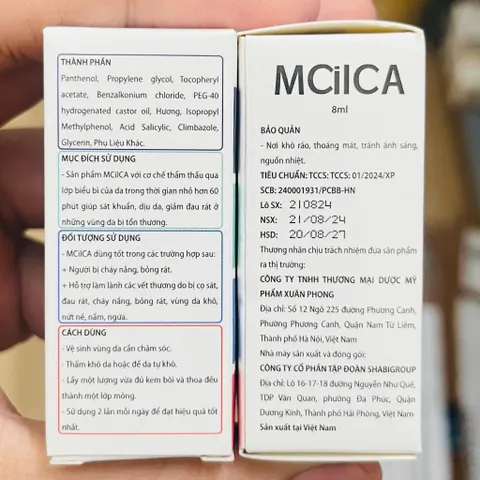 THÀNH PHẦN
Panthenol, Propylene glycol, Tocopheryl
acetate, Benzalkonium chloride, PEG-40
hydrogenated castor oil, Hương, Isopropyl
Methylphenol, Acid Salicylic, Climbazole,
Glycerin, Phụ Liệu Khác.
MỤC ĐÍCH SỬ DỤNG
- Sản phẩm MCiICA với cơ chế thẩm thấu qua
lớp biểu bì của da trong thời gian nhỏ hơn 60
phút giúp sát khuẩn, dịu da, giảm đau rát ở
những vùng da bị tổn thương.
ĐỐI TƯỢNG SỬ DỤNG
- MCiICA dùng tốt trong các trường hợp sau:
+ Người bị cháy nắng, bỏng rát.
+ Hỗ trợ làm lành các vết thương do bị cọ sát,
đau rát, cháy nắng, bỏng rát, vùng da khô,
nứt nẻ, nấm, ngứa.
CÁCH DÙNG
- Vệ sinh vùng da cần chăm sóc.
- Thấm khô da hoặc để da tự khô.
- Lấy một lượng vừa đủ kem bôi và thoa đều
thành một lớp mỏng.
- Sử dụng 2 lần mỗi ngày để đạt hiệu quả tốt
nhất.
MCiICA
8ml
BẢO QUẢN
- Nơi khô ráo, thoáng mát, tránh ánh sáng,
nguồn nhiệt.
TIÊU CHUẨN: TCCS: TCCS: 01/2024/XP
SCB: 240001931/PCBB-HN
Lô SX: 210824
NSX: 21/08/24
HSD: 20/08/27
Thương nhân chịu trách nhiệm đưa sản phẩm
ra thị trường:
CÔNG TY TNHH THƯƠNG MẠI DƯỢC MỸ
PHẨM XUÂN PHONG
Địa chỉ: Số 12 Ngõ 225 đường Phương Canh,
Phường Phương Canh, Quận Nam Từ Liêm,
Thành phố Hà Nội, Việt Nam
Nhà máy sản xuất và đóng gói:
CÔNG TY CỔ PHẦN TẬP ĐOÀN SHABIGROUP
Địa chỉ: Lô 16-17-18 đường Nguyễn Như Quê,
TDP Vân Quan, phường Đa Phúc, Quận
Dương Kinh, Thành phố Hải Phòng, Việt Nam
Sản xuất tại Việt Nam